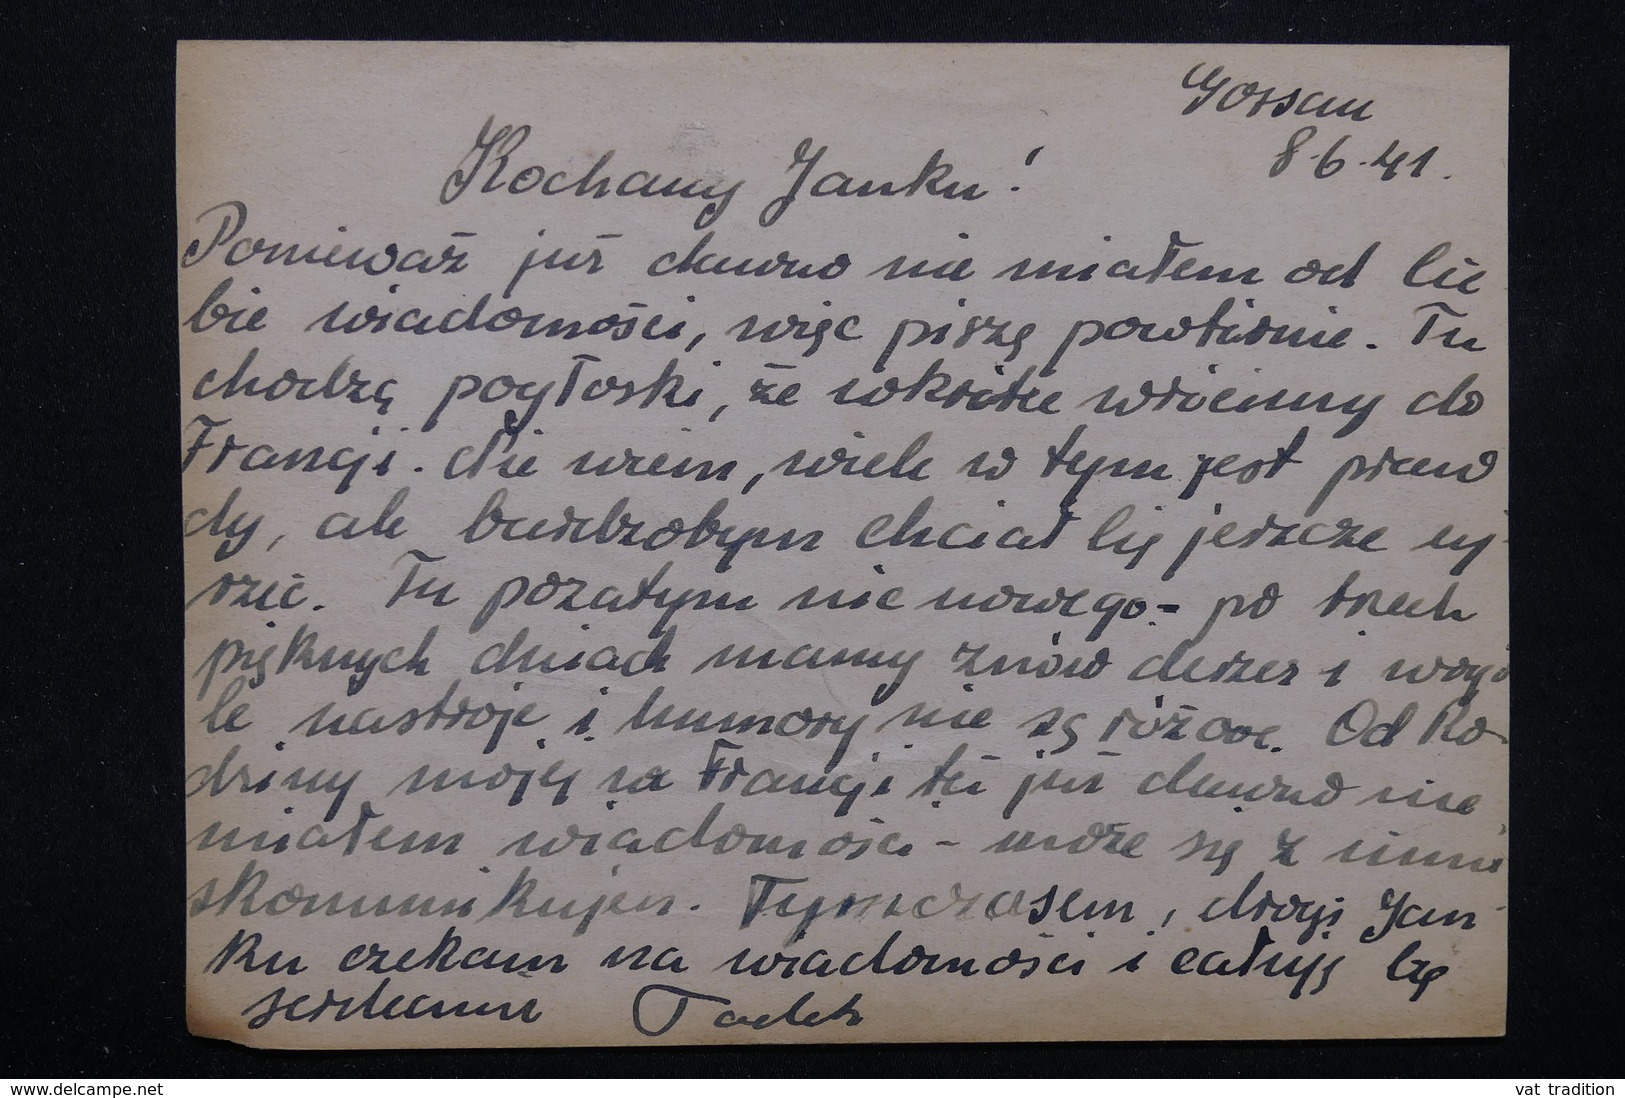 Gossau
8.6.41.
Kochany Janku!
Ponieważ już dawno nie miałem od Cie
bie wiadomości, więc piszę powtórnie. Tu
chodzą pogłoski, że wkrótce wrócimy do
Francji. Nie wiem, wiele w tym jest praw
dy, ale bardzobym chciał Cię jeszcze uj-
rzeć. Tu pozatym nic nowego - po trzech
pięknych dniach mamy znów deszcz i wogó
le nastroje i humory nie są różowe. Od Ro-
dziny mojej na Francji też już dawno nie
miałem wiadomości - może się z nimi
skomunikujesz. Tymczasem, drogi Jan-
ku czekam na wiadomości i całuję Cię
serdecznie Tadek
www.delcampe.net
vat tradition